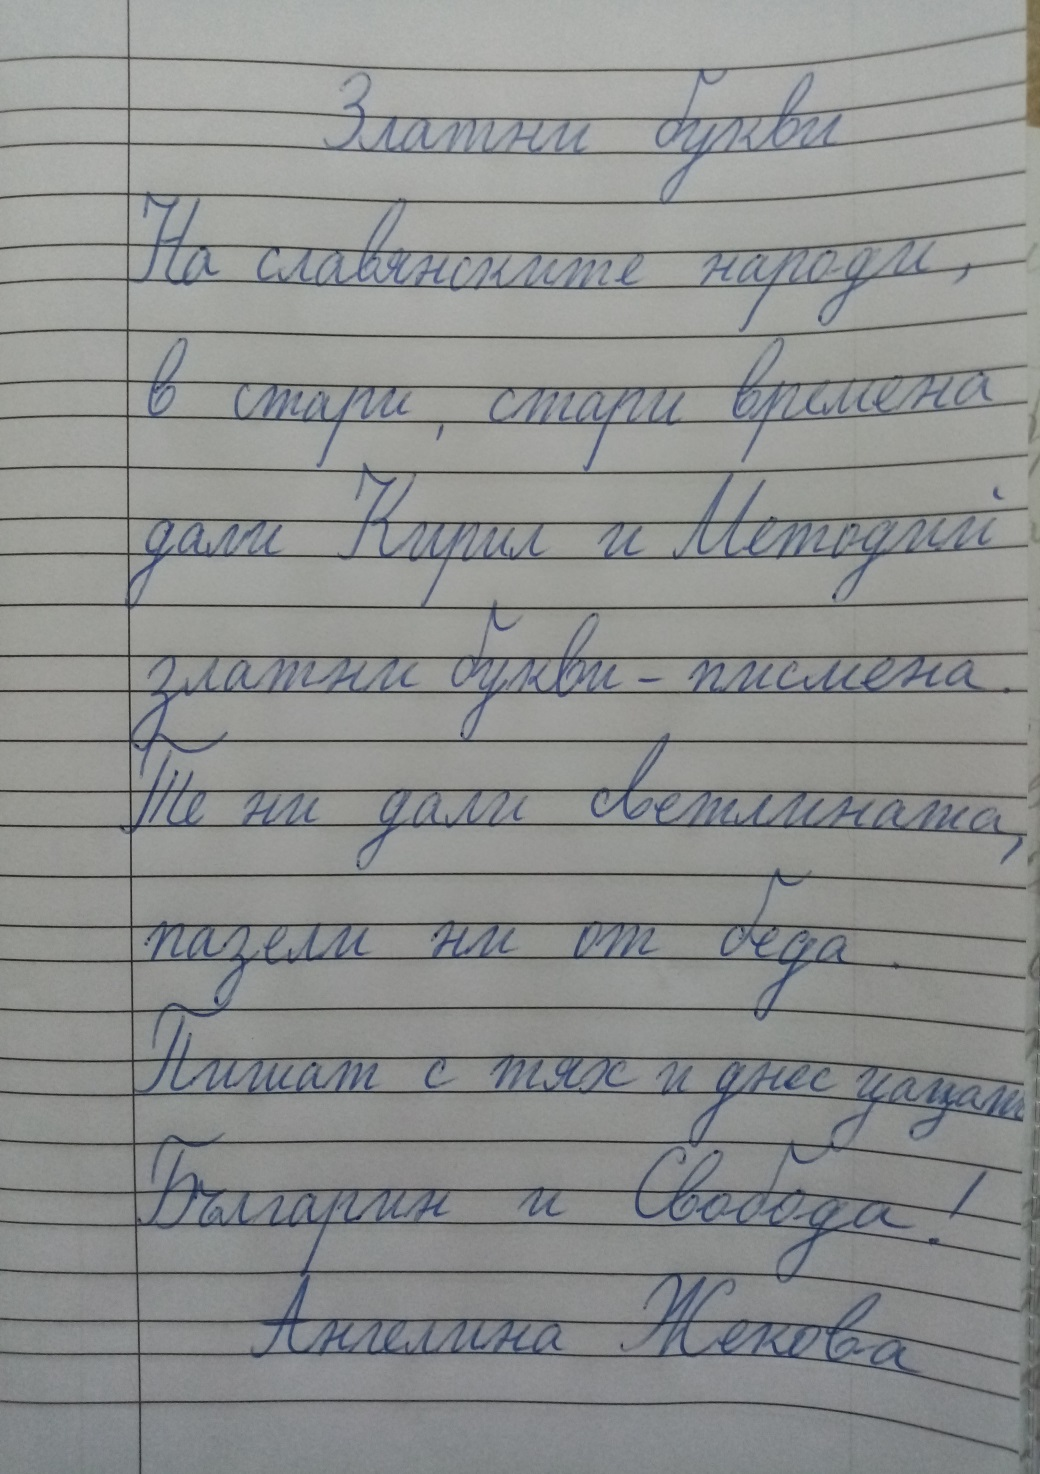 Златни букви
На славянските народи,
в стари, стари времена
дали Кирил и Методий
златни букви - писмена.
Те ни дали светлината,
пазели ни от беда.
Пишат с тях и днес децата
Българин и Свобода!
Ангелина Жекова